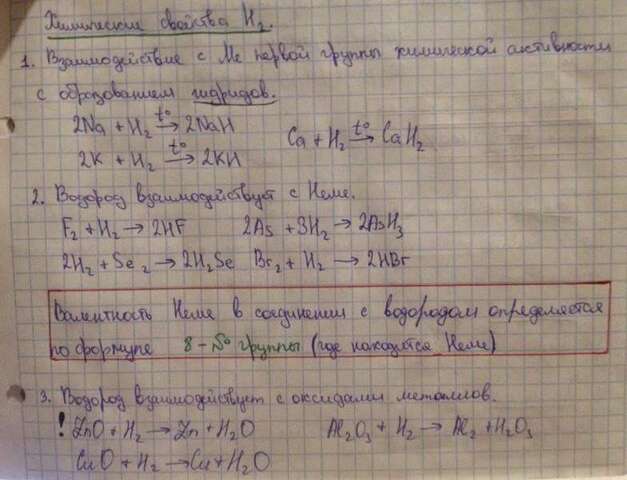 Химические свойства H₂.
1. Взаимодействие с Ме первой группы химической активности
с образованием гидридов.
2Na + H₂ →t° 2NaH Ca + H₂ →t° CaH₂
2K + H₂ →t° 2KH
2. Водород взаимодействует с Неме.
F₂ + H₂ → 2HF 2As + 3H₂ → 2AsH₃
2H₂ + Se₂ → 2H₂Se Br₂ + H₂ → 2HBr
Валентность Неме в соединении с водородом определяется
по формуле 8 - N° группы (где находится Неме)
3. Водород взаимодействует с оксидами металлов.
! ZnO + H₂ → Zn + H₂O Al₂O₃ + H₂ → Al₂ + H₂O₃
CuO + H₂ → Cu + H₂O